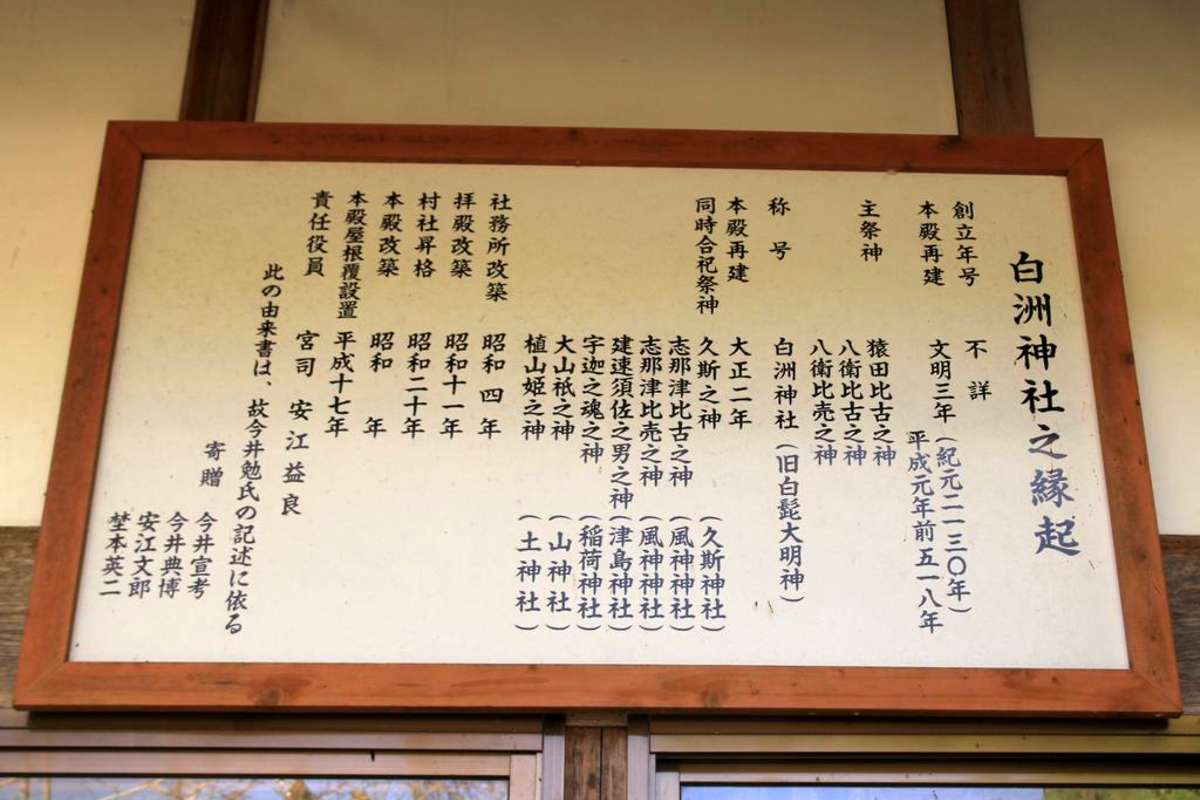 白洲神社之縁起
創立年号 不詳
本殿再建 文明三年(紀元二一三〇年)
平成元年前五一八年
主祭神 猿田比古之神
八衛比古之神
八衛比売之神
称号 白洲神社(旧白髭大明神)
本殿再建 大正二年
同時合祀祭神 久斯之神(久斯神社)
志那津比古之神(風神神社)
志那津比売之神(風神神社)
建速須佐之男之神(津島神社)
宇迦之魂之神(稲荷神社)
大山祇之神(山神社)
植山姫之神(土神社)
社務所改築 昭和四年
拝殿改築 昭和十一年
村社昇格 昭和二十年
本殿改築 昭和 年
本殿屋根覆設置 平成十七年
責任役員 宮司 安江益良
此の由来書は、故今井勉氏の記述に依る
寄贈 今井宣考
今井典博
安江文郎
埜本英二